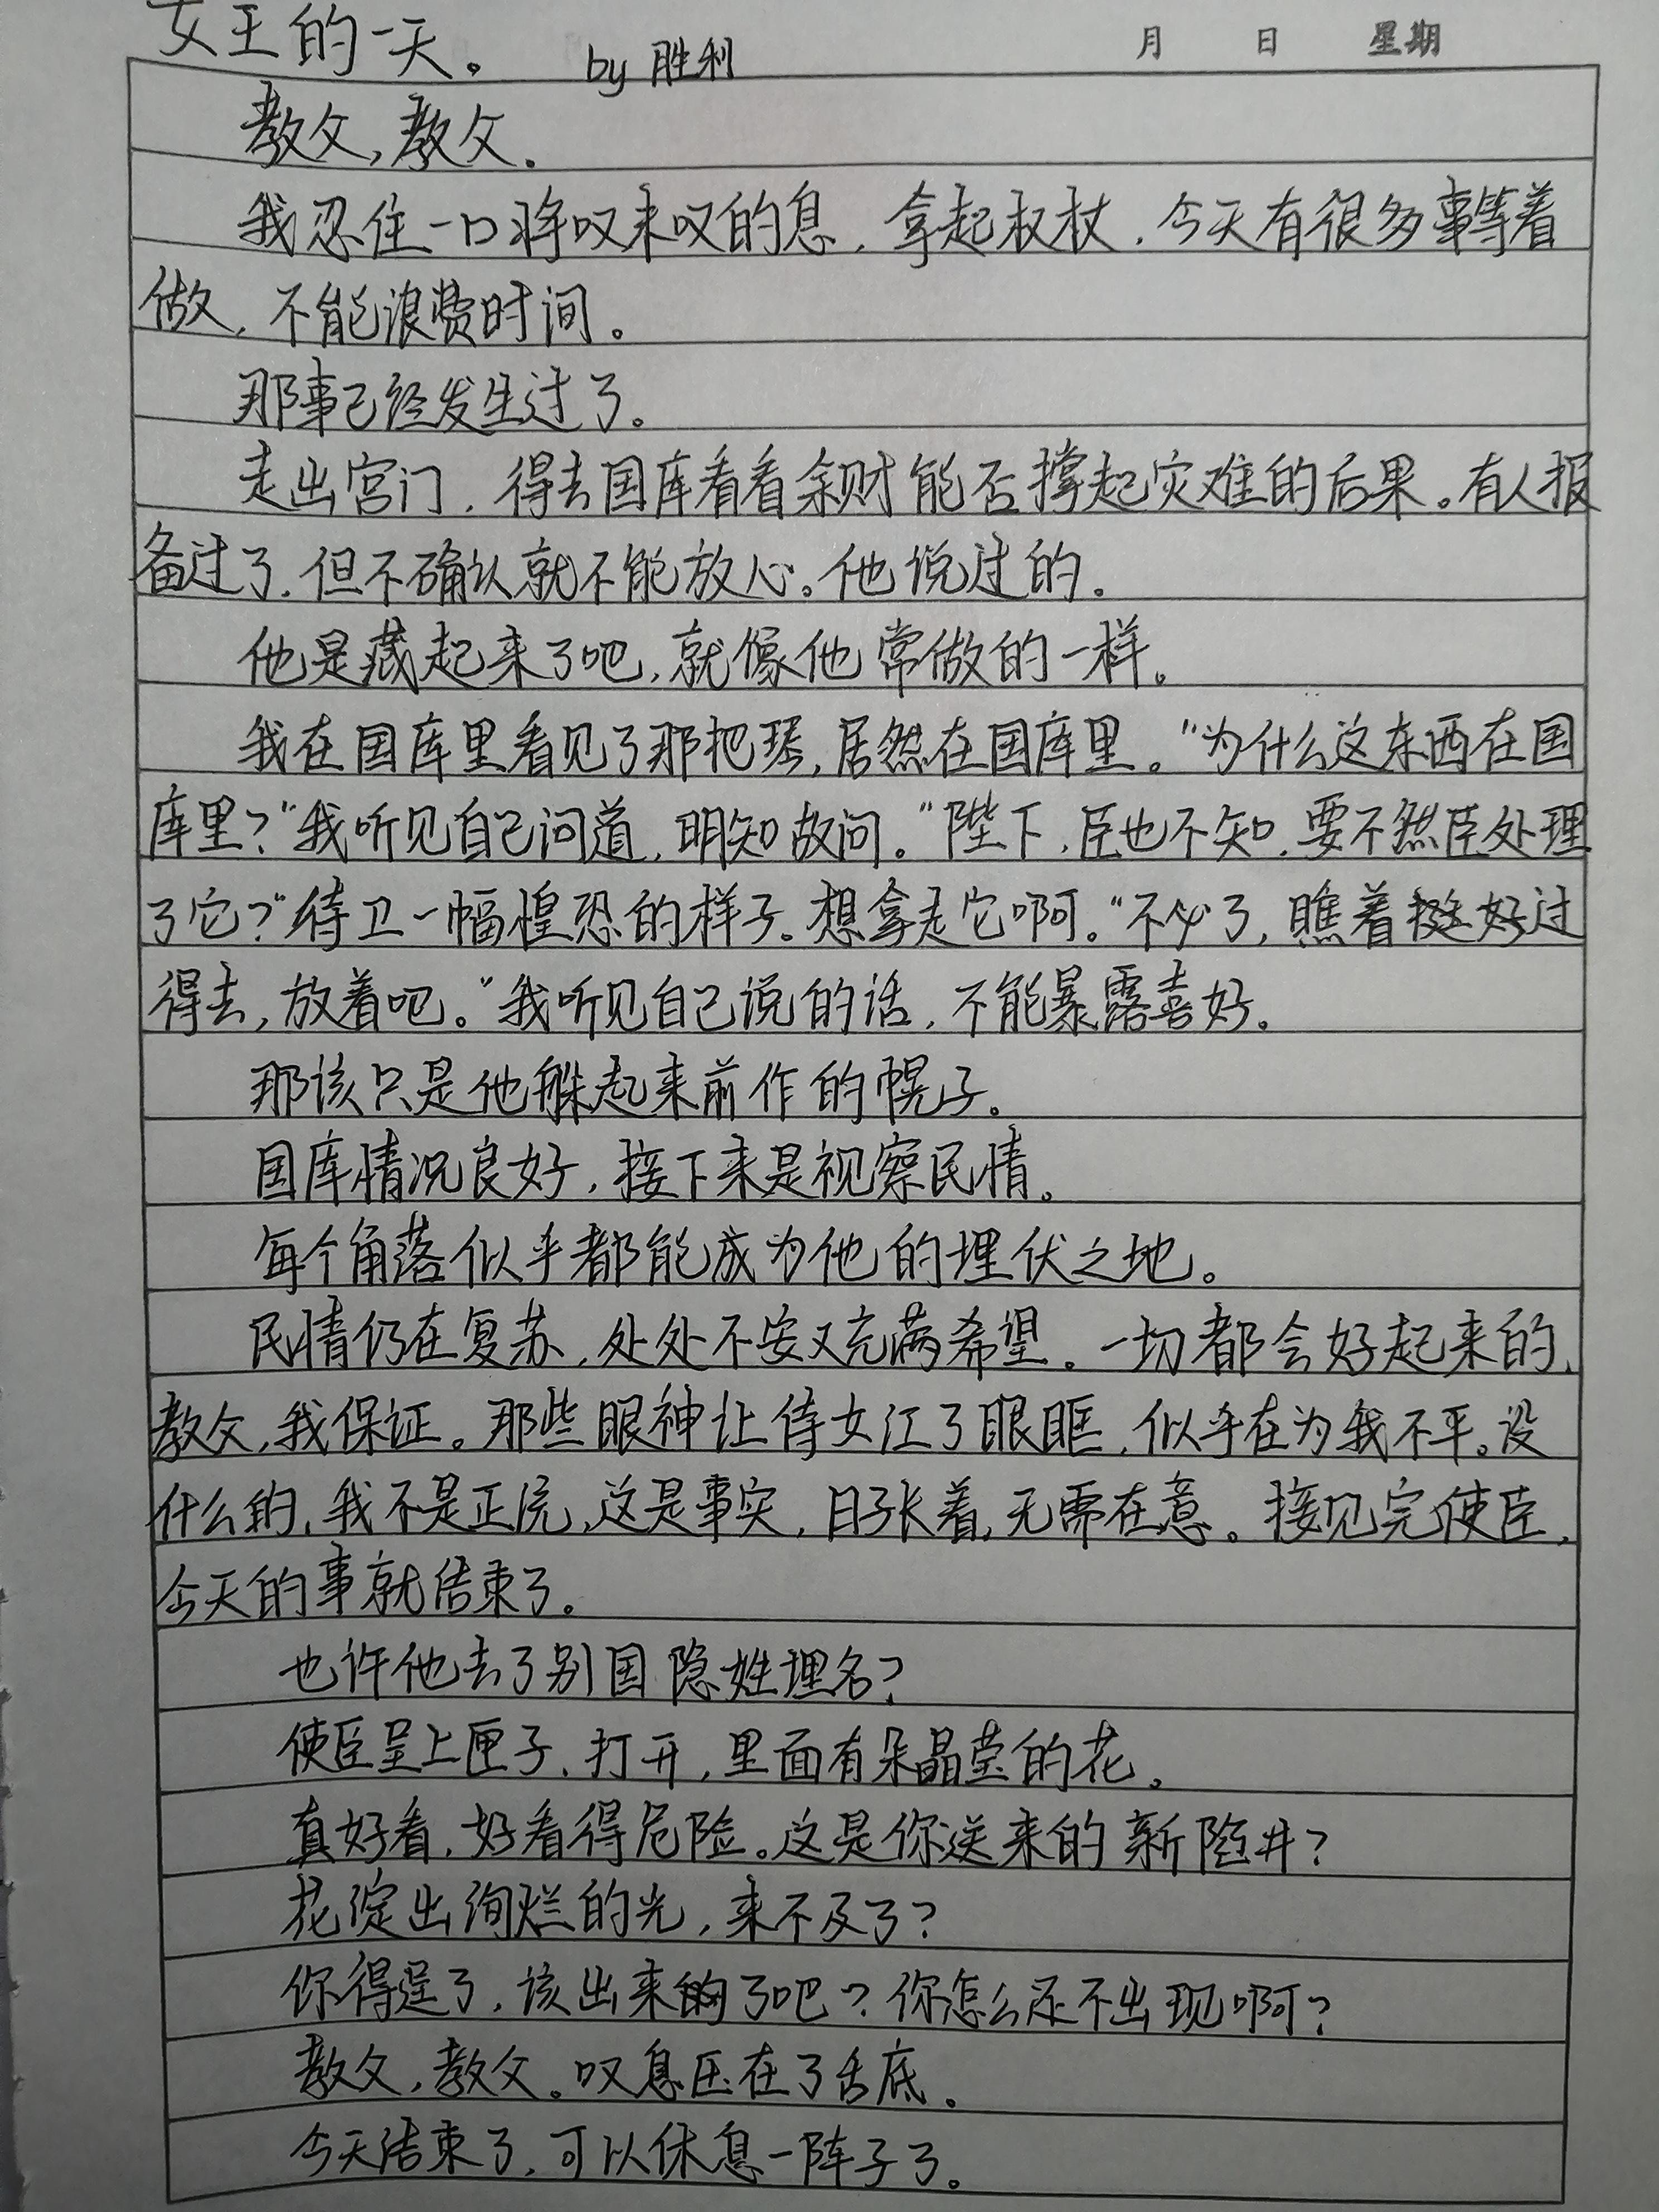 女王的一天。 by 胜利 月 日 星期
教父,教父.
我忍住一口将叹未叹的息,拿起权杖,今天有很多事等着
做,不能浪费时间。
那事已经发生过了。
走出宫门,得去国库看看余财能否撑起灾难的后果。有人报
备过了,但不确认就不能放心。他说过的.
他是藏起来了吧,就像他常做的一样。
我在国库里看见了那把琴,居然在国库里。"为什么这东西在国
库里?"我听见自己问道,明知故问。"陛下,臣也不知,要不然臣处理
了它?"侍卫一幅惶恐的样子。想拿走它啊。"不必了,瞧着挺好过
得去,放着吧。"我听见自己说的话,不能暴露喜好。
那该只是他躲起来前作的幌子。
国库情况良好,接下来是视察民情。
每个角落似乎都能成为他的埋伏之地。
民情仍在复苏,处处不安又充满希望。一切都会好起来的,
教父,我保证。那些眼神让侍女红了眼眶,似乎在为我不平。没
什么的,我不是正统,这是事实,日子长着,无需在意。接见完使臣,
今天的事就结束了。
也许他去了别国隐姓埋名?
使臣呈上匣子,打开,里面有朵晶莹的花。
真好看,好看得危险。这是你送来的新陷井?
花绽出绚烂的光,来不及了?
你得逞了,该出来了吧?你怎么还不出现啊?
教父,教父。叹息压在了舌底。
今天结束了,可以休息一阵子了。